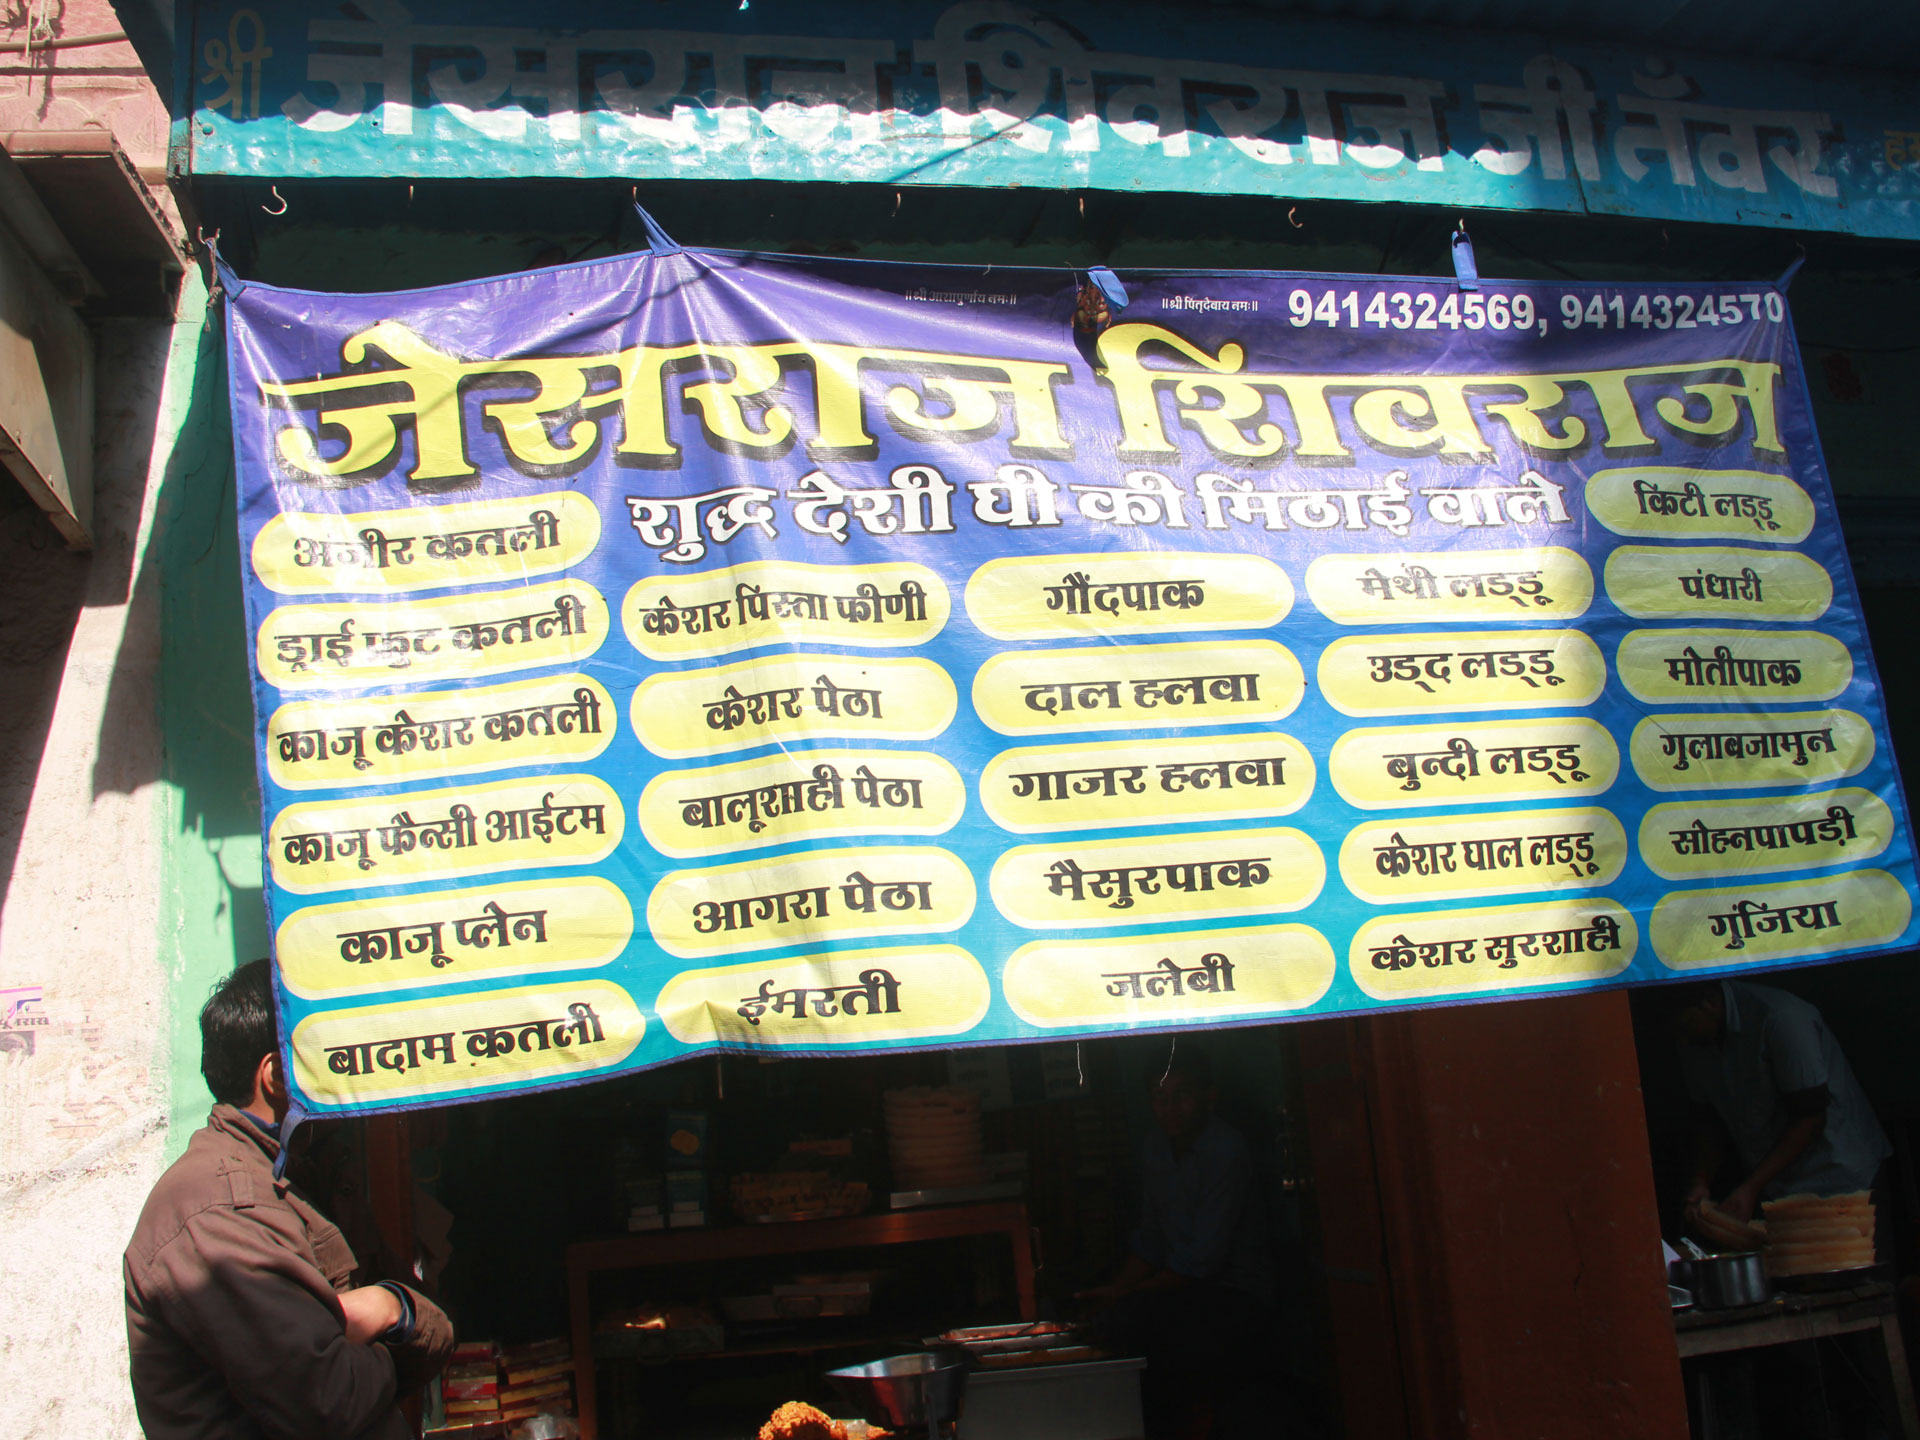 श्री जेसराज शिवराज जी तँवर
॥श्री आशापुर्णाय नमः॥ ॥श्री पितृदेवाय नमः॥ 9414324569, 9414324570
जेसराज शिवराज
शुद्ध देशी घी की मिठाई वाले
अंजीर कतली
ड्राई फ्रुट कतली
काजू केशर कतली
काजू फैन्सी आईटम
काजू प्लेन
बादाम कतली
केशर पिस्ता फीणी
केशर पेठा
बालूशाही पेठा
आगरा पेठा
ईमरती
गौंदपाक
दाल हलवा
गाजर हलवा
मैसुरपाक
जलेबी
मेथी लड्डू
उड्द लड्डू
बुन्दी लड्डू
केशर घाल लड्डू
केशर सुरशाही
किटी लड्डू
पंधारी
मोतीपाक
गुलाबजामुन
सोहनपापड़ी
गुंजिया